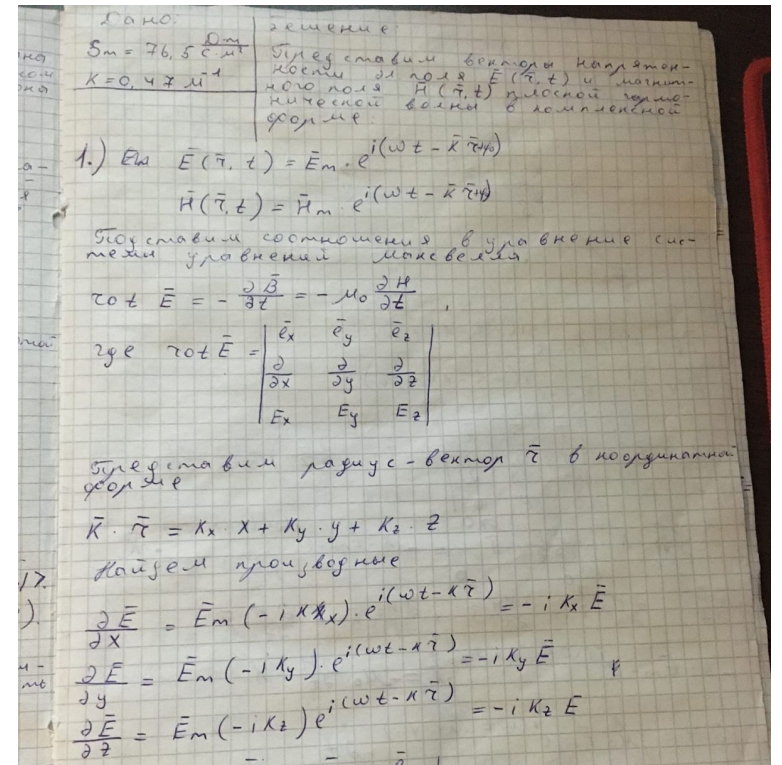 Дано:
Sm = 76,5 Дж/с·м²
K = 0,47 м⁻¹
Решение:
Представим векторы напряжен-
ности эл поля Ē(r̄,t) и магнит-
ного поля H̄(r̄,t) плоской гармо-
нической волны в комплексной
форме:
1.) Ēm Ē(r̄,t) = Ēm · e^{i(ωt − k̄ r̄+φ₀)}
H̄(r̄,t) = H̄m · e^{i(ωt − k̄ r̄+φ)}
Подставим соотношения в уравнение сис-
темы уравнений Максвелла
rot Ē = − ∂B̄/∂t = − μ₀ ∂H/∂t ,
где rot Ē = | ēx ēy ēz |
| ∂/∂x ∂/∂y ∂/∂z |
| Ex Ey Ez |
Представим радиус-вектор r̄ в координатной
форме
K̄ · r̄ = Kx · x + Ky · y + Kz · z
Найдем производные
∂Ē/∂x = Ēm (−i Kx) · e^{i(ωt−k r̄)} = − i Kx Ē
∂E/∂y = Ēm (−i Ky) · e^{i(ωt−k r̄)} = −i Ky Ē
∂Ē/∂z = Ēm (−i Kz) e^{i(ωt−k r̄)} = − i Kz E